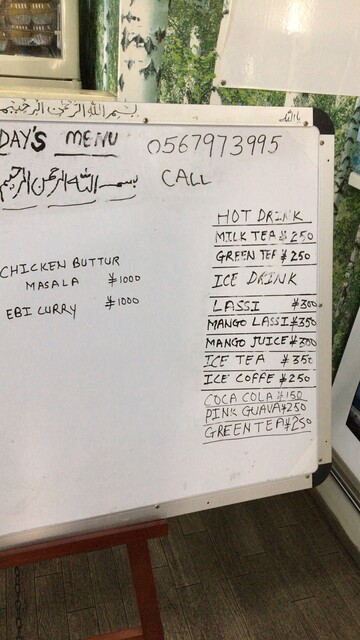 بسم الله الرحمن الرحيم
DAY'S MENU
0567973995
بسم الله الرحمن الرحيم
CALL
CHICKEN BUTTUR
MASALA ¥1000
EBI CURRY ¥1000
HOT DRINK
MILK TEA ¥250
GREEN TEE ¥250
ICE DRINK
LASSI ¥300
MANGO LASSI ¥350
MANGO JUICE ¥300
ICE TEA ¥350
ICE COFFE ¥250
COCA COLA ¥150
PINK GUAVA ¥250
GREEN TEA ¥250